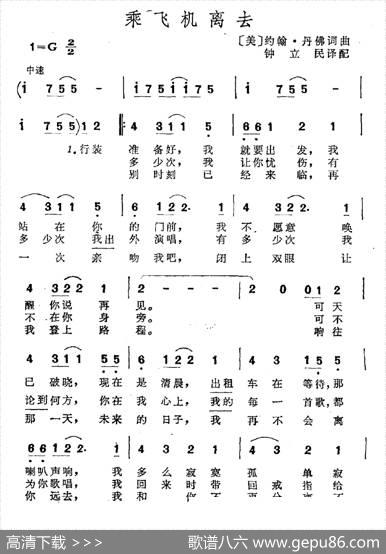 乘飞机离去
1=G 2/2
〔美〕约翰·丹佛词曲
钟立民译配
中速
(i 755 i | i75i175 | i 755 |
i 755)12 ‖: 4 311 5 | 6·6 1 2 5 |
1.行装 准备好，我 就要出发，我
多少次，我 让你忧伤，有
别时刻 已 经来临，再
4 311 5 | 6 122· | 4 3 2 1 |
站在你 的 门前，我 不愿意 唤
多少次 我出 外演唱，有 多少次 我
一次 亲 吻我吧，闭 上双眼 让
4 322 1 | 2 — | 2 0 | 0 01 2 |
醒你说 再 见。可天
不在你 身 旁。可不
我登上 路 程。响往
4 311 5 5 | 6 122 1 | 4 3 | 3 15 5 |
已破晓，现在 是清晨，出租 车在 等待，那
论到何方，你在 我心上，我的 每一 首歌，都
那一天，未来 的日子，我 再不 会离
66122· 1 | 4 3 2 1 | 4 322 1 |
喇叭声响，我 多么寂寞 孤单寂
为你歌唱，我 回来时带 回戒指给
你远去，我 和你不
高清下载 >>>
歌谱八六 www.gepu86.com